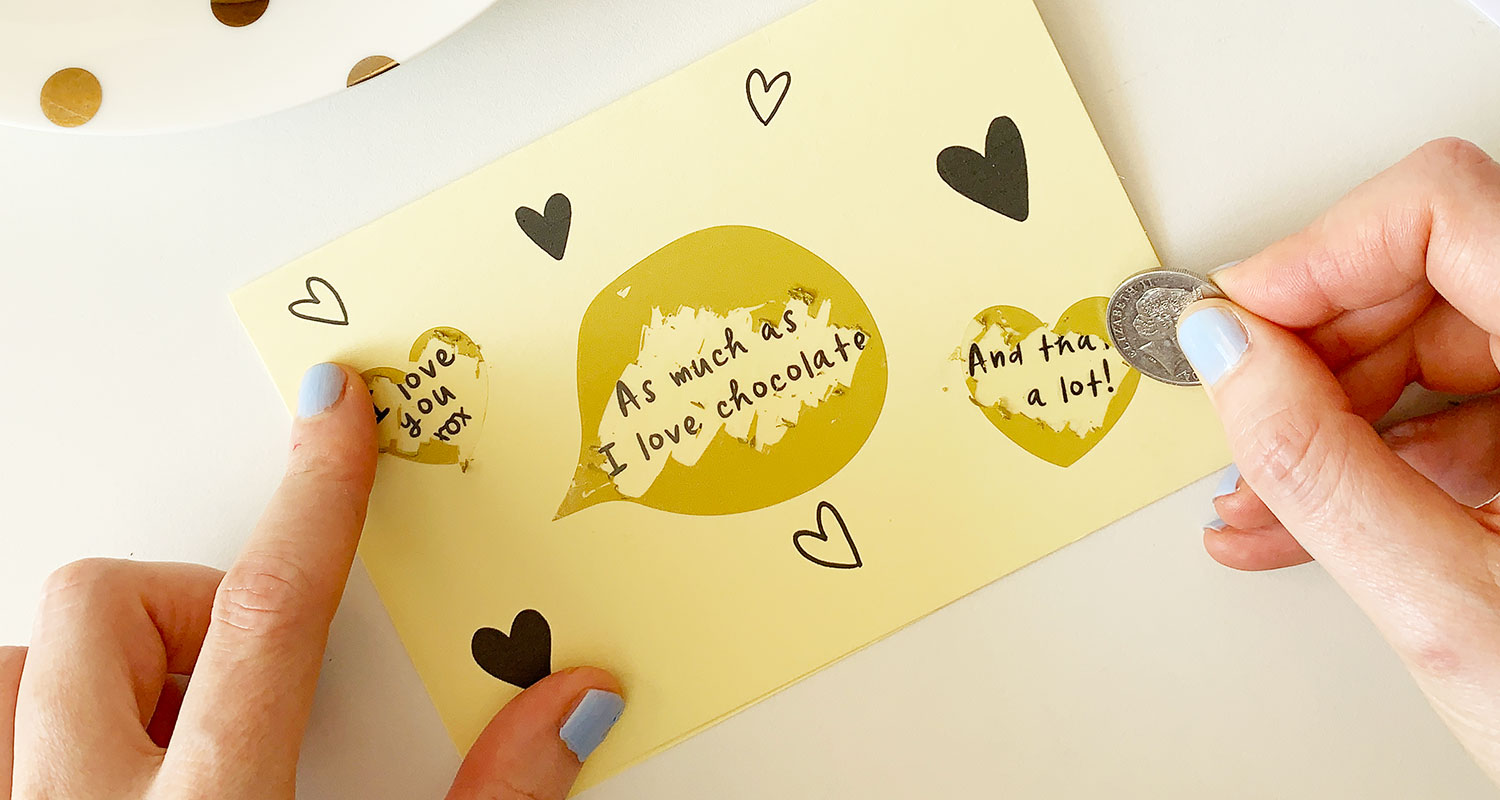 I love
you
xox
As much as
I love chocolate
And tha
a lot!
ELIZABETH II